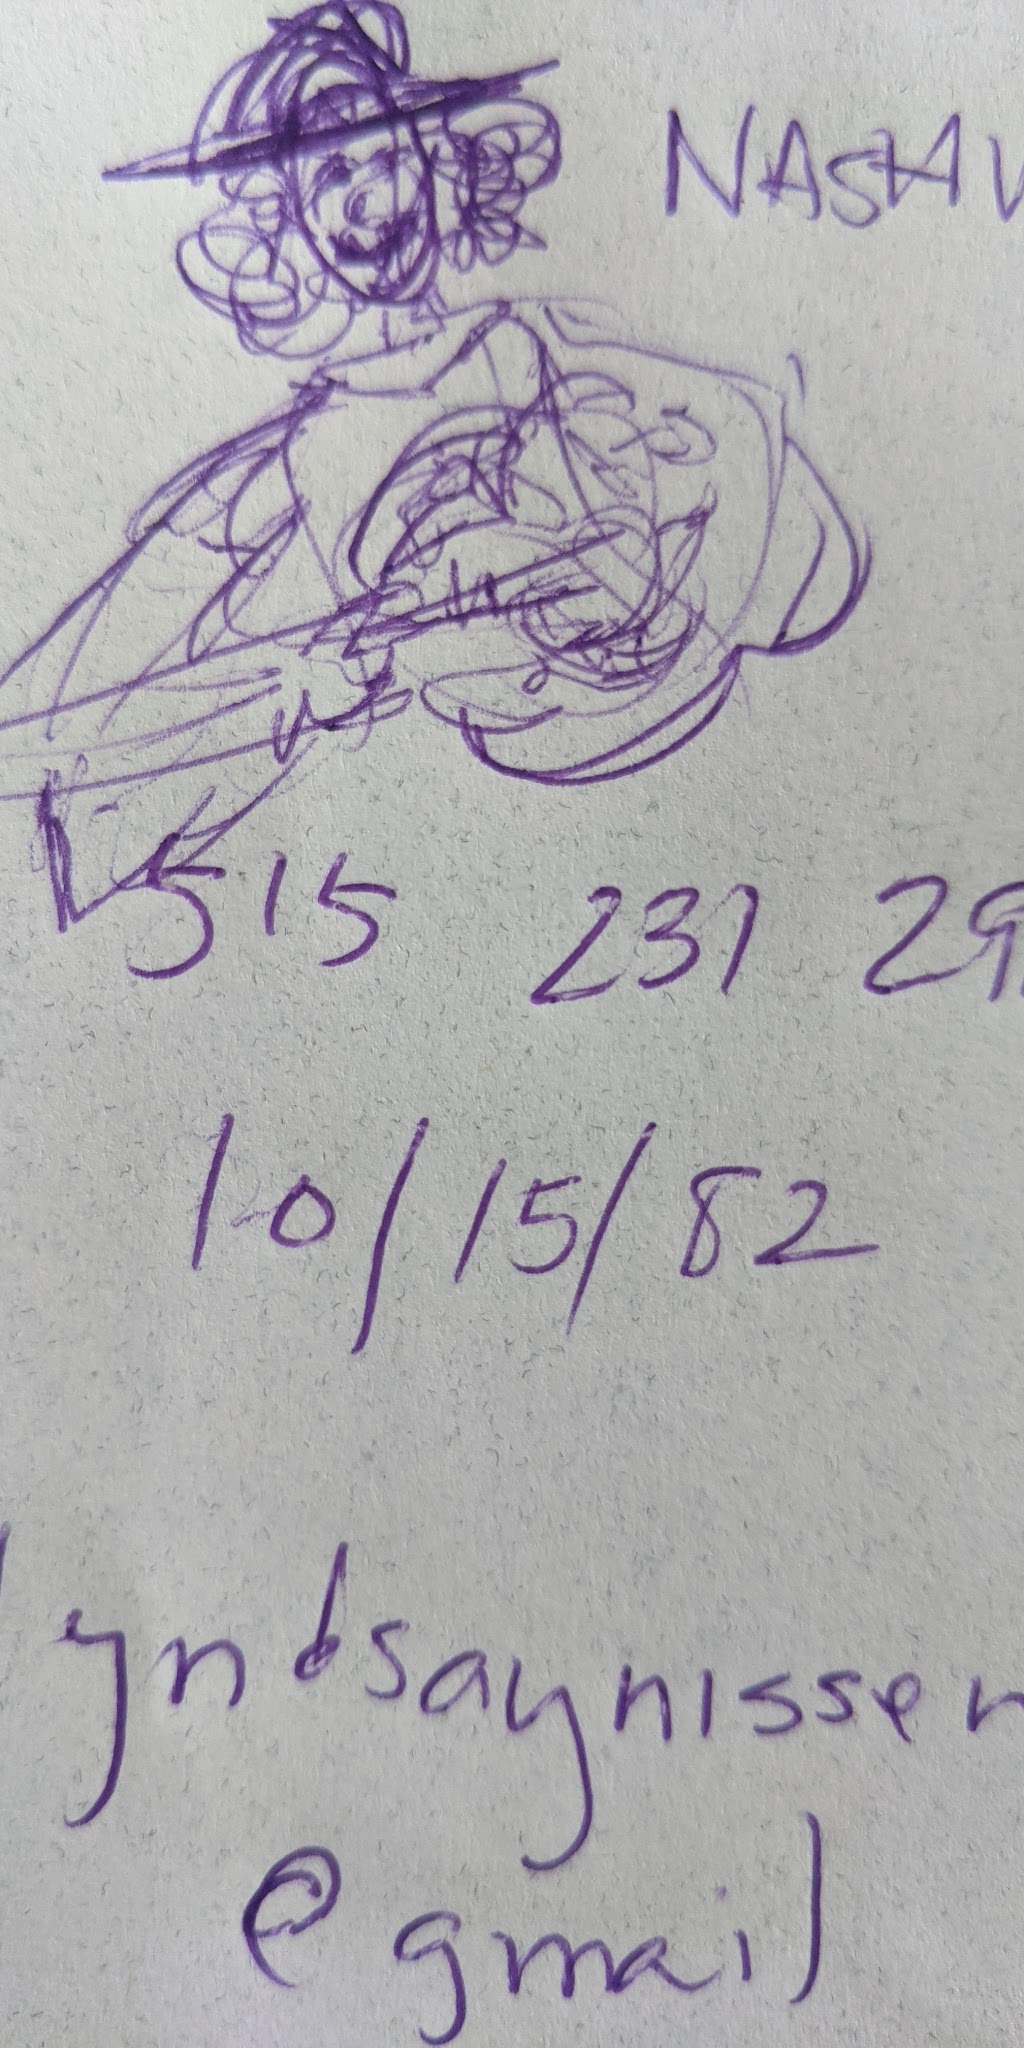 NASHV
515 231 29
10/15/82
lyndsaynissen
@gmail